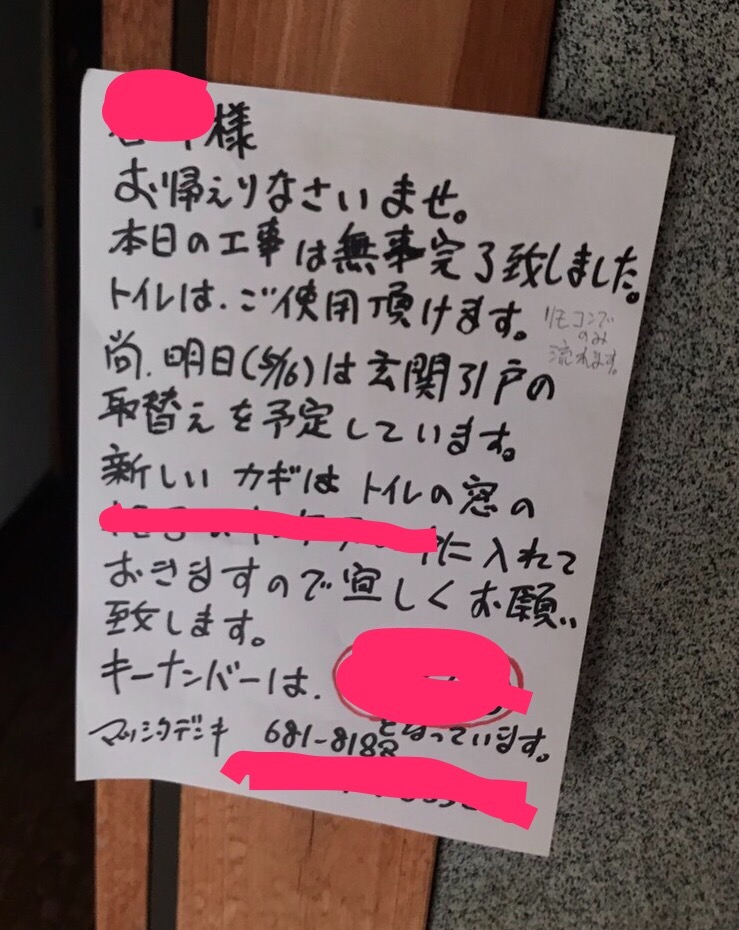 様
お帰えりなさいませ。
本日の工事は無事完了致しました。
トイレは、ご使用頂けます。
リモコンで
のみ
流れます。
尚、明日(5/6)は玄関引戸の
取替えを予定しています。
新しいカギはトイレの窓の
に入れて
おきますので宜しくお願い
致します。
キーナンバーは、
となっています。
マツシタデンキ 681-8188